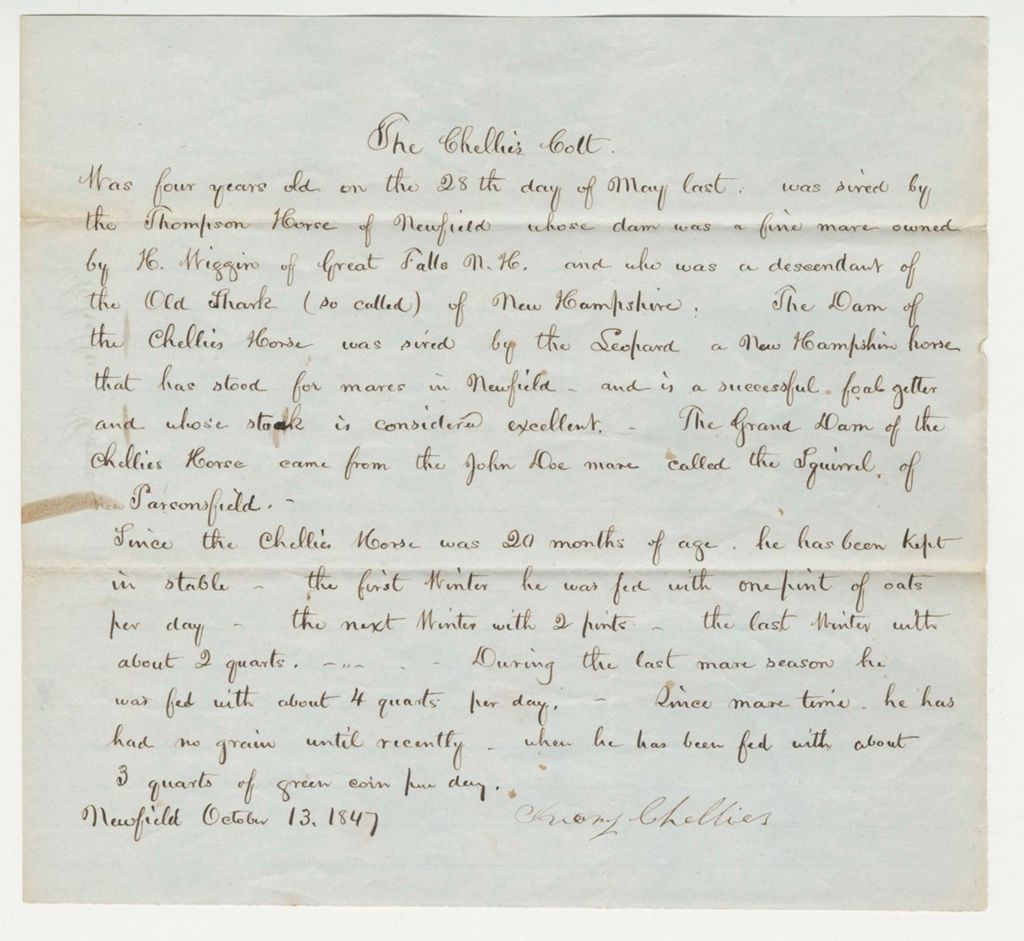 The Chellis Colt.
Was four years old on the 28th day of May last. was sired by
the Thompson Horse of Newfield whose dam was a fine mare owned
by H. Wiggin of Great Falls N. H. and who was a descendant of
the Old Shark (so called) of New Hampshire. The Dam of
the Chellies Horse was sired by the Leopard a New Hampshire horse
that has stood for mares in Newfield - and is a successful foal getter
and whose stock is considered excellent. - The Grand Dam of the
Chellies Horse came from the John Doe mare called the Squirrel, of
Parsonsfield. -
Since the Chellies Horse was 20 months of age. he has been kept
in stable - the first Winter he was fed with one pint of oats
per day - the next Winter with 2 pints - the last Winter with
about 2 quarts. - During the last mare season he
was fed with about 4 quarts per day. - Since mare time he has
had no grain until recently - when he has been fed with about
3 quarts of green corn per day.
Newfield October 13. 1847 Chellies